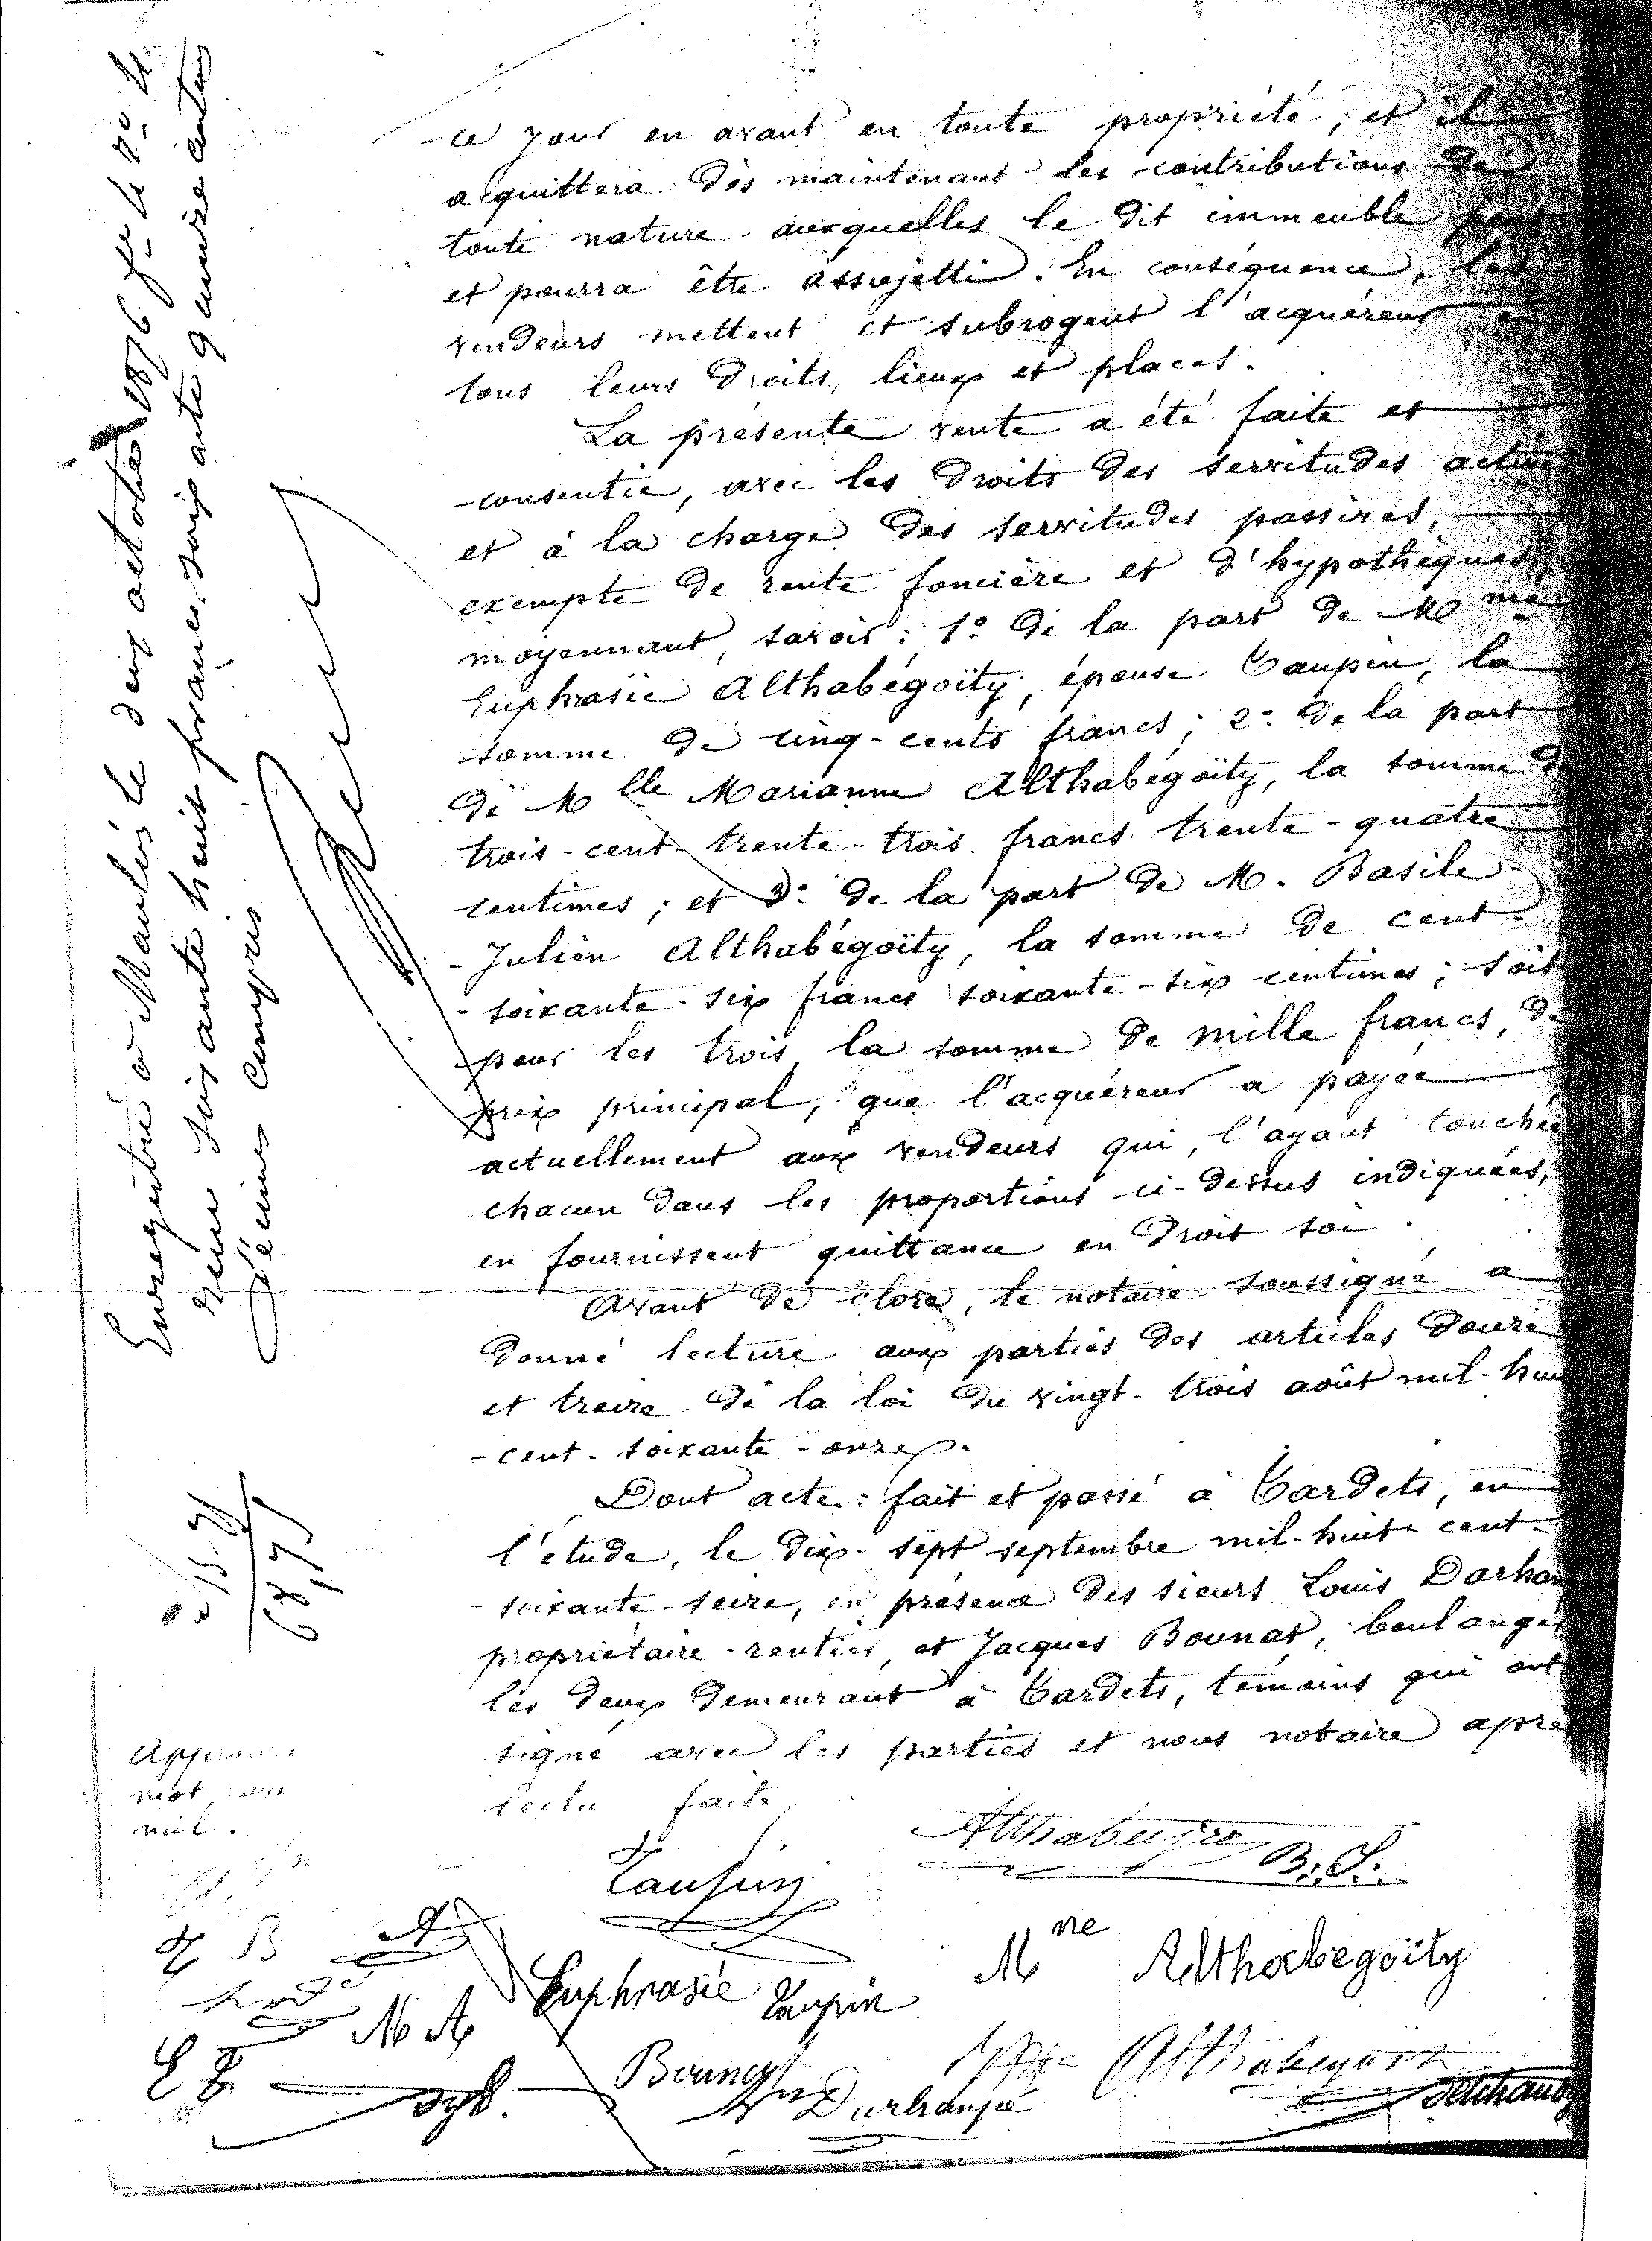 ce jour en avant en toute propriété ; et il
acquittera dès maintenant les contributions de
toute nature auxquelles le dit immeuble peut
et pourra être assujetti. En conséquence, les
vendeurs mettent et subrogent l'acquéreur en
tous leurs droits, lieux et places.
La présente vente a été faite et
consentie, avec les droits des servitudes actives
et à la charge des servitudes passives,
exempte de rente foncière et d'hypothèques,
moyennant, savoir : 1º de la part de Mme
Euphrasie Althabégoïty, épouse Taupin, la
somme de cinq-cents francs ; 2º de la part
de Mlle Marianne Althabégoïty, la somme de
trois-cent-trente-trois francs trente-quatre
centimes ; et 3º de la part de M. Basile
-Julien Althabégoïty, la somme de cent-
-soixante-six francs soixante-six centimes ; soit
pour les trois, la somme de mille francs, de
prix principal, que l'acquéreur a payée
actuellement aux vendeurs qui, l'ayant touchée
chacun dans les proportions ci-dessus indiquées,
en fournissent quittance en droit soi.
Avant de clore, le notaire soussigné a
donné lecture aux parties des articles douze
et treize de la loi du vingt-trois août mil-huit
-cent-soixante-onze.
Dont acte : fait et passé à Tardets, en
l'étude, le dix-sept septembre mil-huit-cent-
-soixante-seize, en présence des sieurs Louis Darhan
propriétaire-rentier, et Jacques Bounat, boulanger
les deux demeurant à Tardets, témoins qui ont
signé avec les parties et nous notaire après
lecture faite
Enregistré à Mauléon le deux octobre 1876 fº 4 rº
Reçu soixante huit francs soixante quinze centimes
décimes compris
6875
mot
nul.
Taupin
B. J.
Mne Althabegoïty
Euphrasie Taupin
M A
E T
Bounat